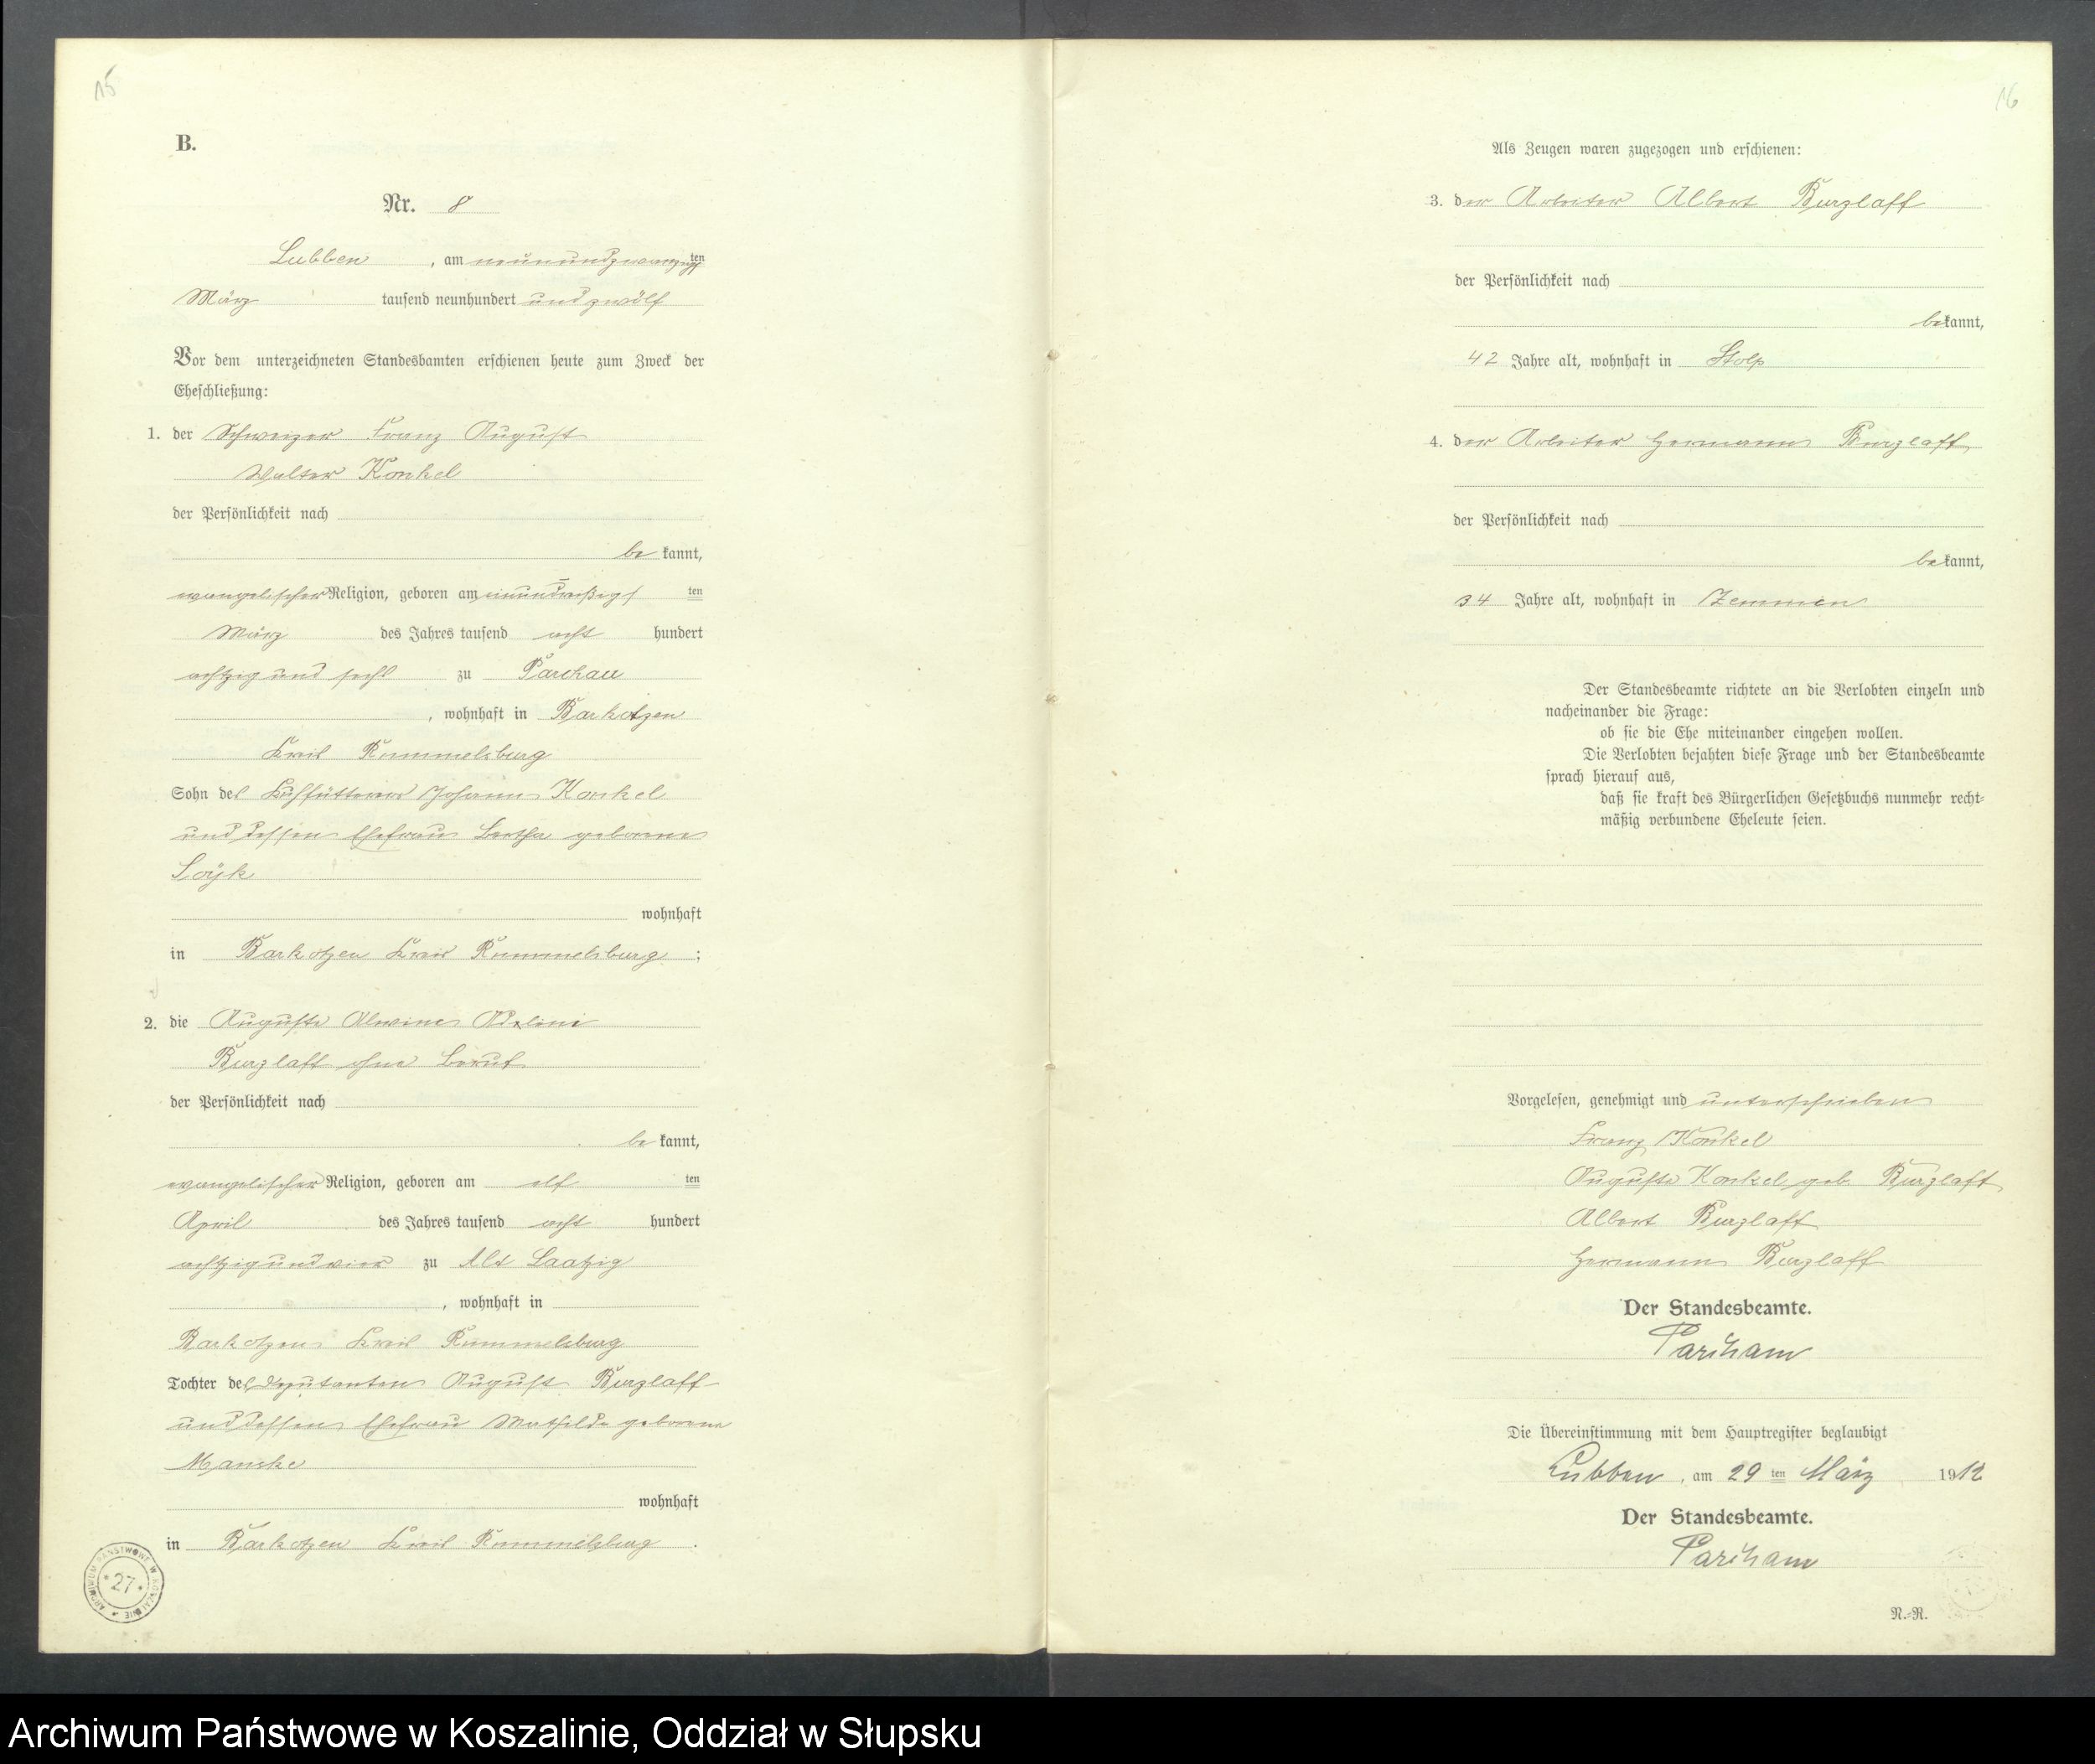 15
B.
Nr. 8
Lubben, am neunundzwanzigsten
März tausend neunhundert und zwölf
Vor dem unterzeichneten Standesbamten erschienen heute zum Zweck der
Eheschließung:
1. der Schweizer Franz August
Walter Konkel
der Persönlichkeit nach
be kannt,
evangelischer Religion, geboren am einunddreißigs ten
März des Jahres tausend acht hundert
achtzig und sechs zu Parchau
, wohnhaft in Barkotzen
Kreis Rummelsburg
Sohn des Kuhfütterers Johann Konkel
und dessen Ehefrau Bertha geborene
Löÿk
wohnhaft
in Barkotzen Kreis Rummelsburg ;
2. die Auguste Alwine Adeline
Burzlaff ohne Beruf
der Persönlichkeit nach
be kannt,
evangelischer Religion, geboren am elf ten
April des Jahres tausend acht hundert
achtzig und vier zu Alt Laatzig
, wohnhaft in
Barkotzen Kreis Rummelsburg
Tochter des Deputanten August Burzlaff
und dessen Ehefrau Mathilde geborene
Manske
wohnhaft
in Barkotzen Kreis Rummelsburg .
ARCHIWUM PAŃSTWOWE W KOSZALINIE
* 27 *
16
Als Zeugen waren zugezogen und erschienen:
3. der Arbeiter Albert Burzlaff
der Persönlichkeit nach
bekannt,
42 Jahre alt, wohnhaft in Stolp
4. der Arbeiter Hermann Burzlaff
der Persönlichkeit nach
bekannt,
34 Jahre alt, wohnhaft in Zemmen
Der Standesbeamte richtete an die Verlobten einzeln und
nacheinander die Frage:
ob sie die Ehe miteinander eingehen wollen.
Die Verlobten bejahten diese Frage und der Standesbeamte
sprach hierauf aus,
daß sie kraft des Bürgerlichen Gesetzbuchs nunmehr recht-
mäßig verbundene Eheleute seien.
Vorgelesen, genehmigt und unterschrieben
Franz Konkel
Auguste Konkel geb. Burzlaff
Albert Burzlaff
Hermann Burzlaff
Der Standesbeamte.
Die Übereinstimmung mit dem Hauptregister beglaubigt
Lubben, am 29 ten März 1912
Der Standesbeamte.
N.-R.
Archiwum Państwowe w Koszalinie, Oddział w Słupsku